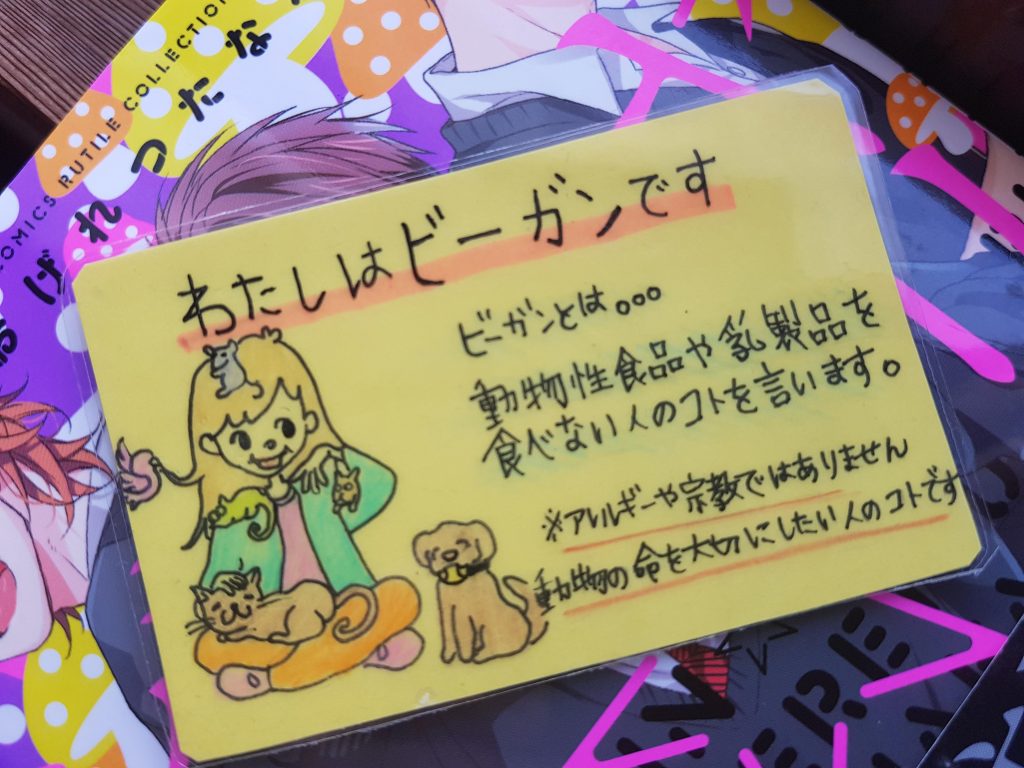 COMICS RUTILE COLLECTION
げれつたな
わたしはビーガンです
ビーガンとは。。。
動物性食品や乳製品を
食べない人のコトを言います。
※アレルギーや宗教ではありません
動物の命を大切にしたい人のコトです